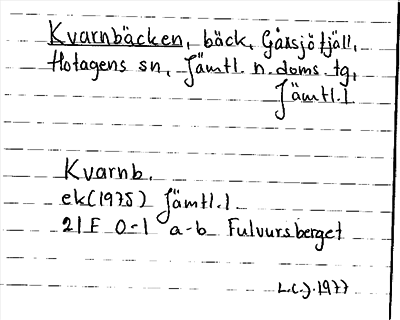 Kvarnbäcken, bäck, Gåxsjö fjäll,
Hotagens sn, Jämtl. n. doms. tg,
Jämtl. l
Kvarnb.
ek(1975) Jämtl. l
21 E 0-1 a-b Fulvursberget
L.C.J. 1977